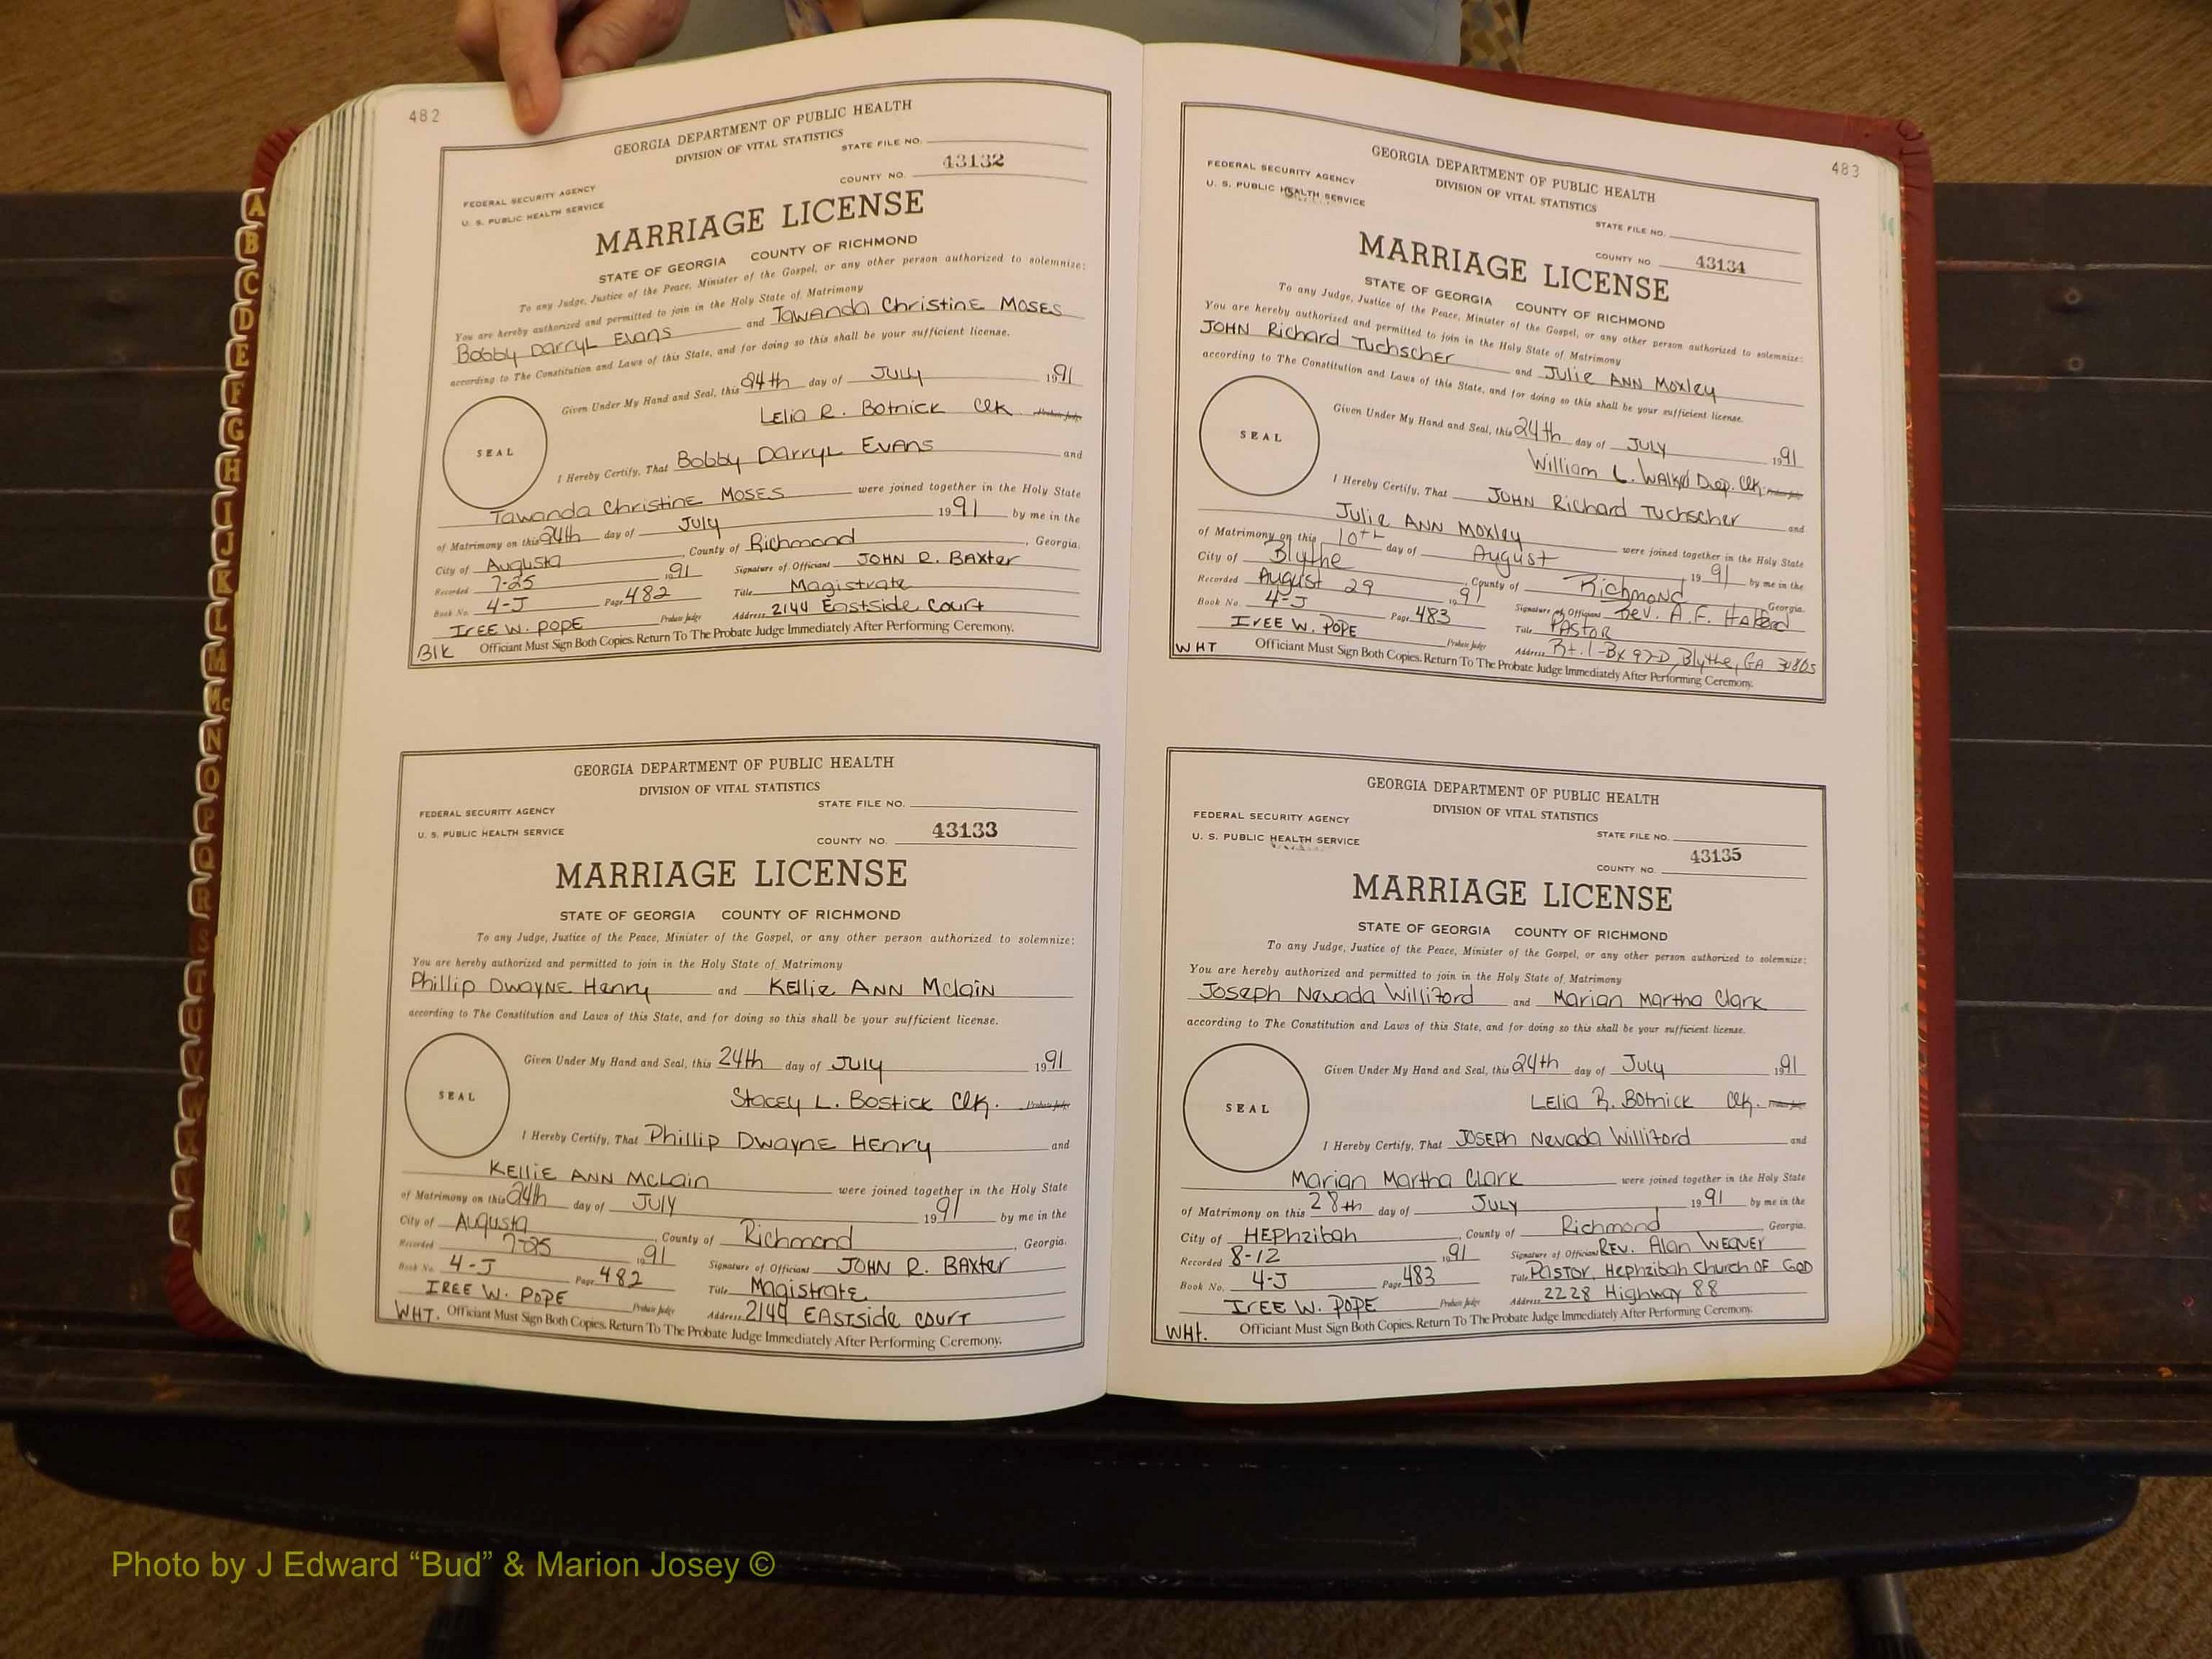 482
GEORGIA DEPARTMENT OF PUBLIC HEALTH
DIVISION OF VITAL STATISTICS
STATE FILE NO.
FEDERAL SECURITY AGENCY
U. S. PUBLIC HEALTH SERVICE
COUNTY NO. 43132
MARRIAGE LICENSE
STATE OF GEORGIA COUNTY OF RICHMOND
To any Judge, Justice of the Peace, Minister of the Gospel, or any other person authorized to solemnize:
You are hereby authorized and permitted to join in the Holy State of Matrimony
Bobby Darryl Evans and Tawanda Christine Moses
according to The Constitution and Laws of this State, and for doing so this shall be your sufficient license.
Given Under My Hand and Seal, this 24th day of July 1991
Lelia R. Botnick Clk. Probate Judge
SEAL
I Hereby Certify, That Bobby Darryl Evans and
Tawanda Christine Moses were joined together in the Holy State
of Matrimony on this 24th day of July 1991 by me in the
City of Augusta, County of Richmond, Georgia.
Recorded 7-25 1991 Signature of Officiant JOHN R. BAxter
Book No. 4-J Page 482 Title Magistrate
IrEE W. POPE Probate Judge Address 2144 Eastside Court
Blk Officiant Must Sign Both Copies. Return To The Probate Judge Immediately After Performing Ceremony.
GEORGIA DEPARTMENT OF PUBLIC HEALTH
DIVISION OF VITAL STATISTICS
FEDERAL SECURITY AGENCY STATE FILE NO.
U. S. PUBLIC HEALTH SERVICE COUNTY NO. 43133
MARRIAGE LICENSE
STATE OF GEORGIA COUNTY OF RICHMOND
To any Judge, Justice of the Peace, Minister of the Gospel, or any other person authorized to solemnize:
You are hereby authorized and permitted to join in the Holy State of Matrimony
Phillip Dwayne Henry and Kellie Ann Mclain
according to The Constitution and Laws of this State, and for doing so this shall be your sufficient license.
Given Under My Hand and Seal, this 24th day of July 1991
Stacey L. Bostick Clk. Probate Judge
SEAL
I Hereby Certify, That Phillip Dwayne Henry and
Kellie Ann McLain were joined together in the Holy State
of Matrimony on this 24th day of July 1991 by me in the
City of Augusta, County of Richmond, Georgia.
Recorded 7-25 1991 Signature of Officiant JOHN R. BAxter
Book No. 4-J Page 482 Title Magistrate
IREE W. POPE Probate Judge Address 2144 Eastside Court
WHT. Officiant Must Sign Both Copies. Return To The Probate Judge Immediately After Performing Ceremony.
483
GEORGIA DEPARTMENT OF PUBLIC HEALTH
DIVISION OF VITAL STATISTICS
FEDERAL SECURITY AGENCY
U. S. PUBLIC HEALTH SERVICE
STATE FILE NO.
COUNTY NO 43134
MARRIAGE LICENSE
STATE OF GEORGIA COUNTY OF RICHMOND
To any Judge, Justice of the Peace, Minister of the Gospel, or any other person authorized to solemnize:
You are hereby authorized and permitted to join in the Holy State of Matrimony
John Richard Tuchscher and Julie Ann Moxley
according to The Constitution and Laws of this State, and for doing so this shall be your sufficient license.
Given Under My Hand and Seal, this 24th day of July 1991
William L. Dep. Clk. Probate Judge
SEAL
I Hereby Certify, That John Richard Tuchscher and
Julie Ann Moxley were joined together in the Holy State
of Matrimony on this 10th day of August 1991 by me in the
City of Blythe, County of Richmond Georgia.
Recorded August 29 1991 Signature of Officiant Rev. A.F.
Book No. 4-J Page 483 Title Pastor
IrEE W. POPE Probate Judge Address Rt. 1-Bx 97-D, Blythe, GA
WHT Officiant Must Sign Both Copies. Return To The Probate Judge Immediately After Performing Ceremony.
GEORGIA DEPARTMENT OF PUBLIC HEALTH
DIVISION OF VITAL STATISTICS
FEDERAL SECURITY AGENCY STATE FILE NO.
U. S. PUBLIC HEALTH SERVICE COUNTY NO. 43135
MARRIAGE LICENSE
STATE OF GEORGIA COUNTY OF RICHMOND
To any Judge, Justice of the Peace, Minister of the Gospel, or any other person authorized to solemnize:
You are hereby authorized and permitted to join in the Holy State of Matrimony
Joseph Nevada Williford and Marian Martha Clark
according to The Constitution and Laws of this State, and for doing so this shall be your sufficient license.
Given Under My Hand and Seal, this 24th day of July 1991
Lelia R. Botnick Clk. Probate Judge
SEAL
I Hereby Certify, That Joseph Nevada Williford and
Marian Martha Clark were joined together in the Holy State
of Matrimony on this 28th day of July 1991 by me in the
City of Hephzibah, County of Richmond, Georgia.
Recorded 8-12 1991 Signature of Officiant Rev. Alan Weaver
Book No. 4-J Page 483 Title Pastor, Hephzibah Church OF GOD
IrEE W. POPE Probate Judge Address 2228 Highway 88
WHt. Officiant Must Sign Both Copies. Return To The Probate Judge Immediately After Performing Ceremony.
A
B
C
D
E
F
G
H
I
J
K
L
M
Mc
N
O
P
Q
R
S
T
Photo by J Edward “Bud” & Marion Josey ©